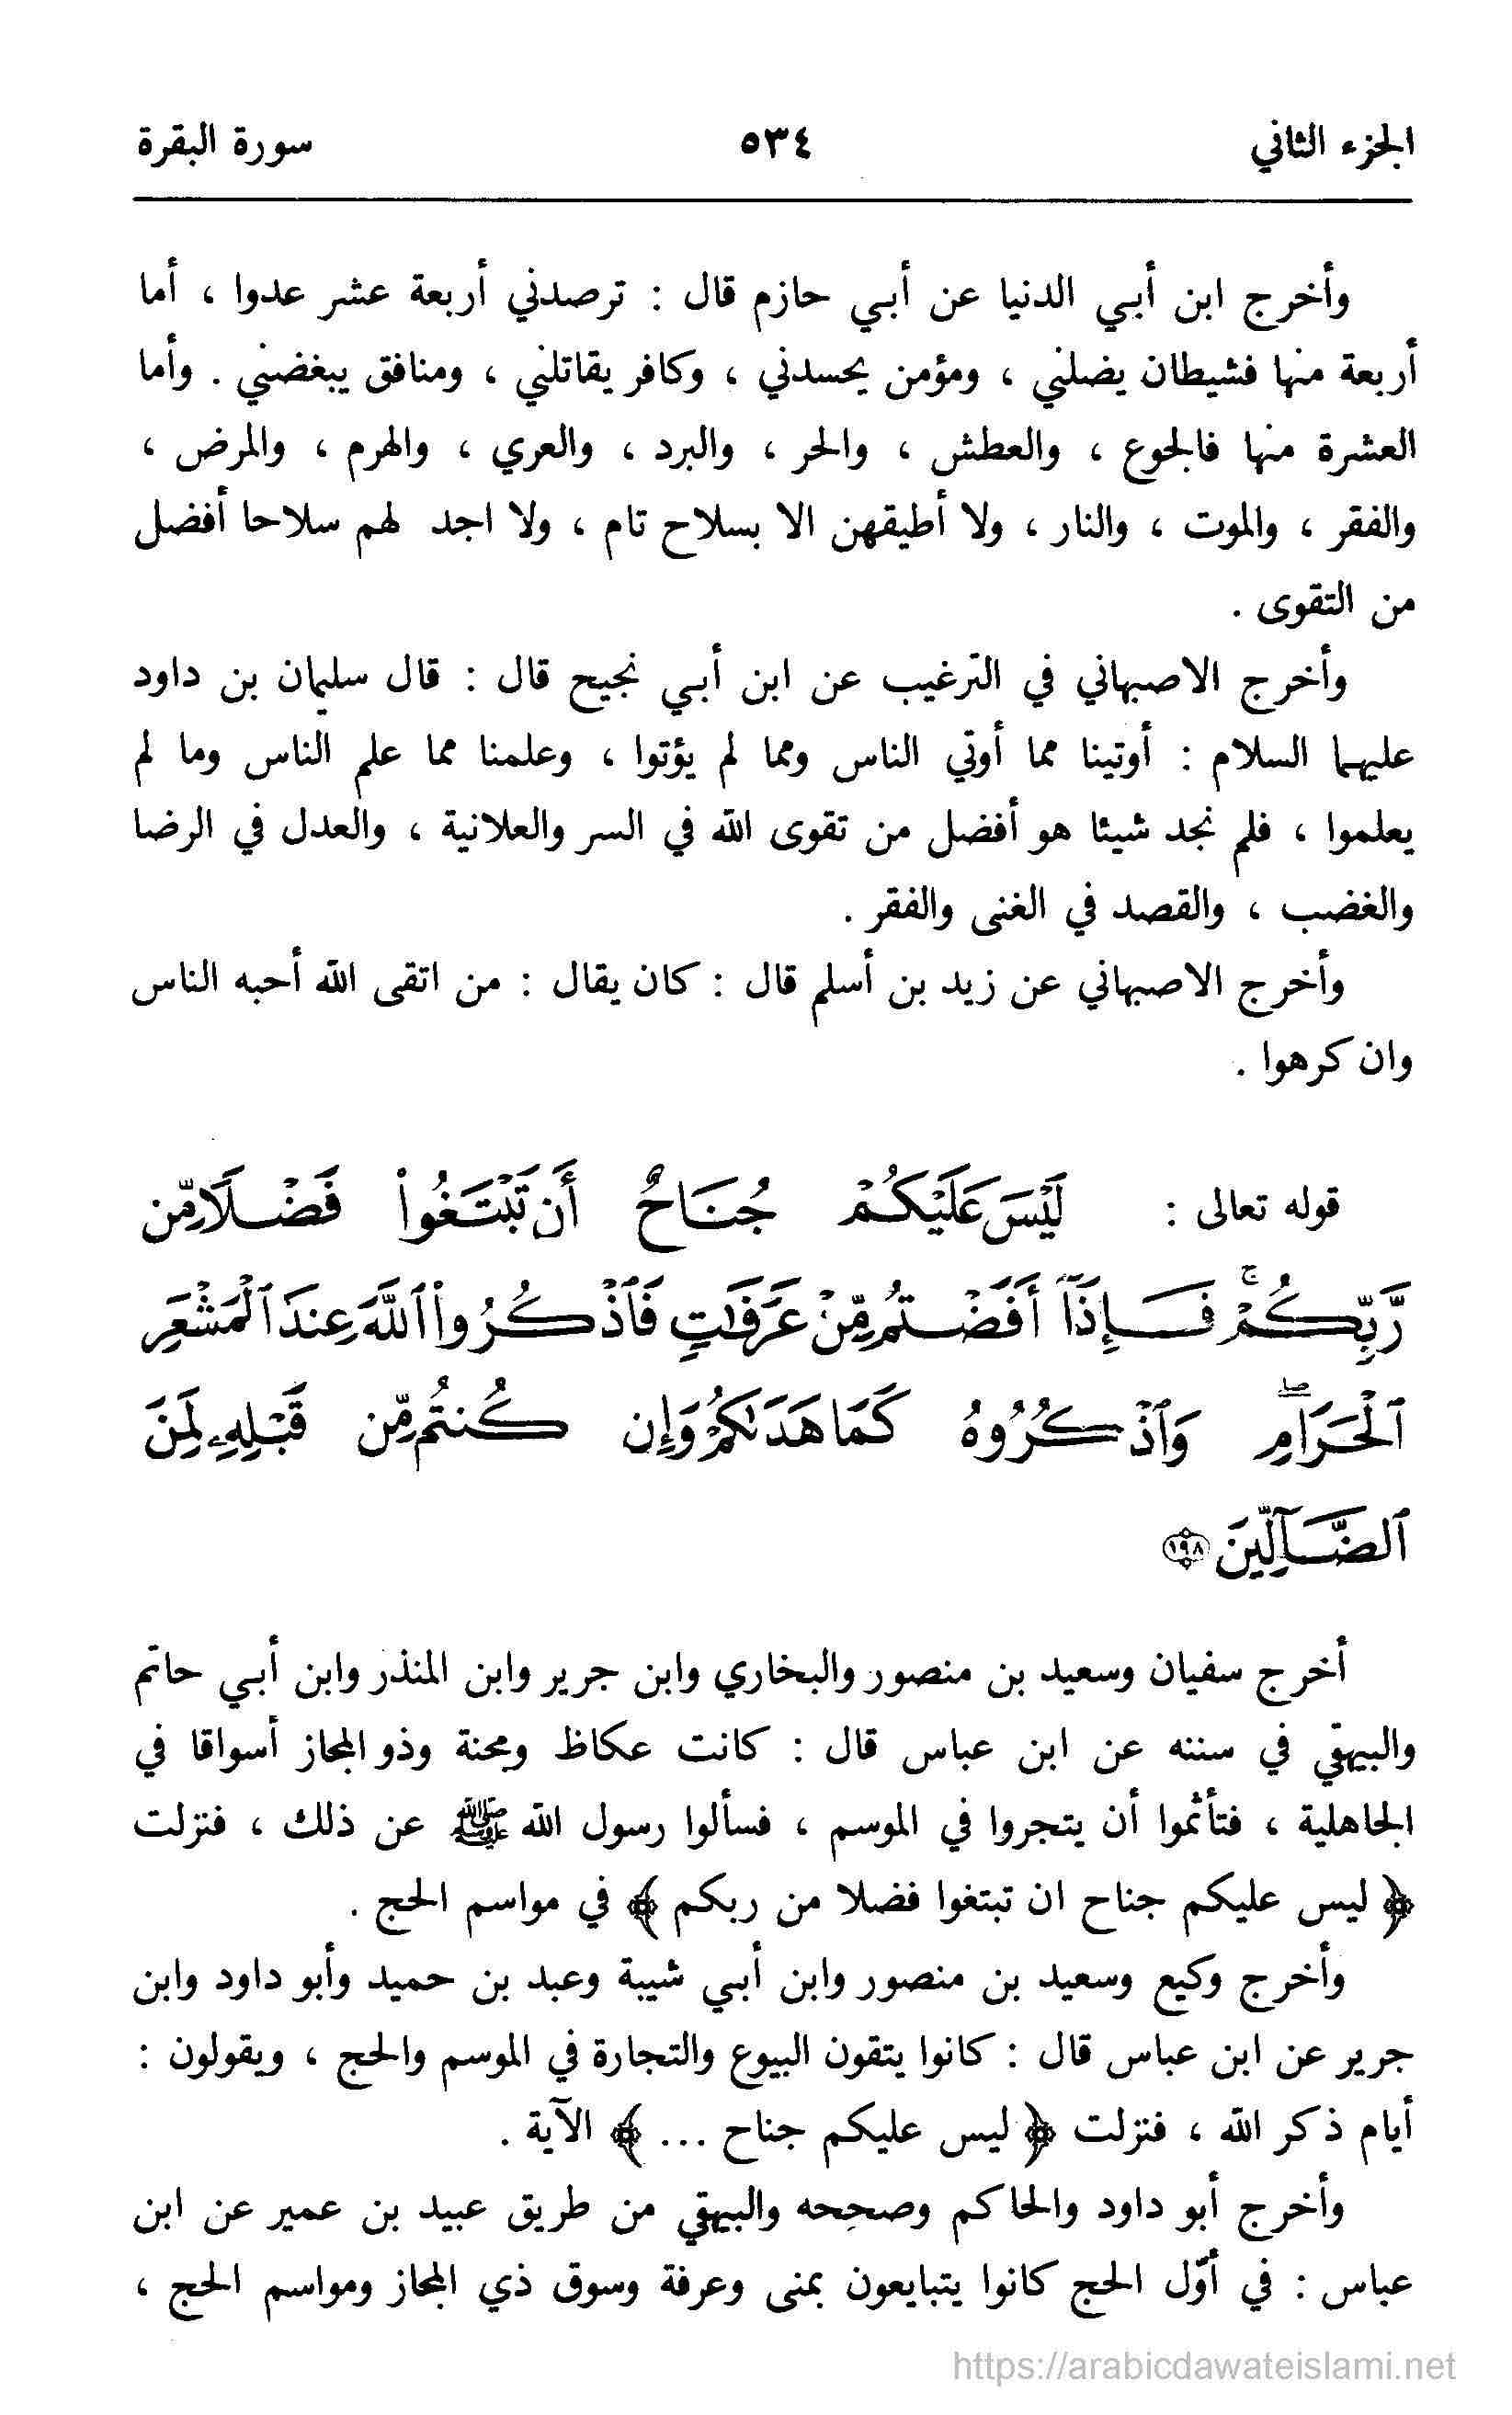 الجزء الثاني ٥٣٤ سورة البقرة
وأخرج ابن أبي الدنيا عن أبي حازم قال : ترصدني أربعة عشر عدوا ، أما
أربعة منها فشيطان يضلني ، ومؤمن يحسدني ، وكافر يقاتلني ، ومنافق يبغضني . وأما
العشرة منها فالجوع ، والعطش ، والحر ، والبرد ، والعري ، والهرم ، والمرض ،
والفقر ، والموت ، والنار ، ولا أطيقهن الا بسلاح تام ، ولا اجد لهم سلاحا أفضل
من التقوى .
وأخرج الاصبهاني في الترغيب عن ابن أبي نجيح قال : قال سليمان بن داود
عليهما السلام : أوتينا مما أوتي الناس ومما لم يؤتوا ، وعلمنا مما علم الناس وما لم
يعلموا ، فلم نجد شيئا هو أفضل من تقوى الله في السر والعلانية ، والعدل في الرضا
والغضب ، والقصد في الغنى والفقر .
وأخرج الاصبهاني عن زيد بن أسلم قال : كان يقال : من اتقى الله أحبه الناس
وان كرهوا .
قوله تعالى : لَيْسَ عَلَيْكُمْ جُنَاحٌ أَن تَبْتَغُوا۟ فَضْلًا مِّن
رَّبِّكُمْ ۚ فَإِذَآ أَفَضْتُم مِّنْ عَرَفَٰتٍ فَٱذْكُرُوا۟ ٱللَّهَ عِندَ ٱلْمَشْعَرِ
ٱلْحَرَامِ ۖ وَٱذْكُرُوهُ كَمَا هَدَىٰكُمْ وَإِن كُنتُم مِّن قَبْلِهِۦ لَمِنَ
ٱلضَّآلِّينَ ١٩٨
أخرج سفيان وسعيد بن منصور والبخاري وابن جرير وابن المنذر وابن أبي حاتم
والبيهقي في سننه عن ابن عباس قال : كانت عكاظ ومجنة وذو المجاز أسواقا في
الجاهلية ، فتأثموا أن يتجروا في الموسم ، فسألوا رسول الله ﷺ عن ذلك ، فنزلت
﴿ ليس عليكم جناح ان تبتغوا فضلا من ربكم ﴾ في مواسم الحج .
وأخرج وكيع وسعيد بن منصور وابن أبي شيبة وعبد بن حميد وأبو داود وابن
جرير عن ابن عباس قال : كانوا يتقون البيوع والتجارة في الموسم والحج ، ويقولون :
أيام ذكر الله ، فنزلت ﴿ ليس عليكم جناح ... ﴾ الآية .
وأخرج أبو داود والحاكم وصححه والبيهقي من طريق عبيد بن عمير عن ابن
عباس : في أوّل الحج كانوا يتبايعون بمنى وعرفة وسوق ذي المجاز ومواسم الحج ،
https://arabicdawateislami.net